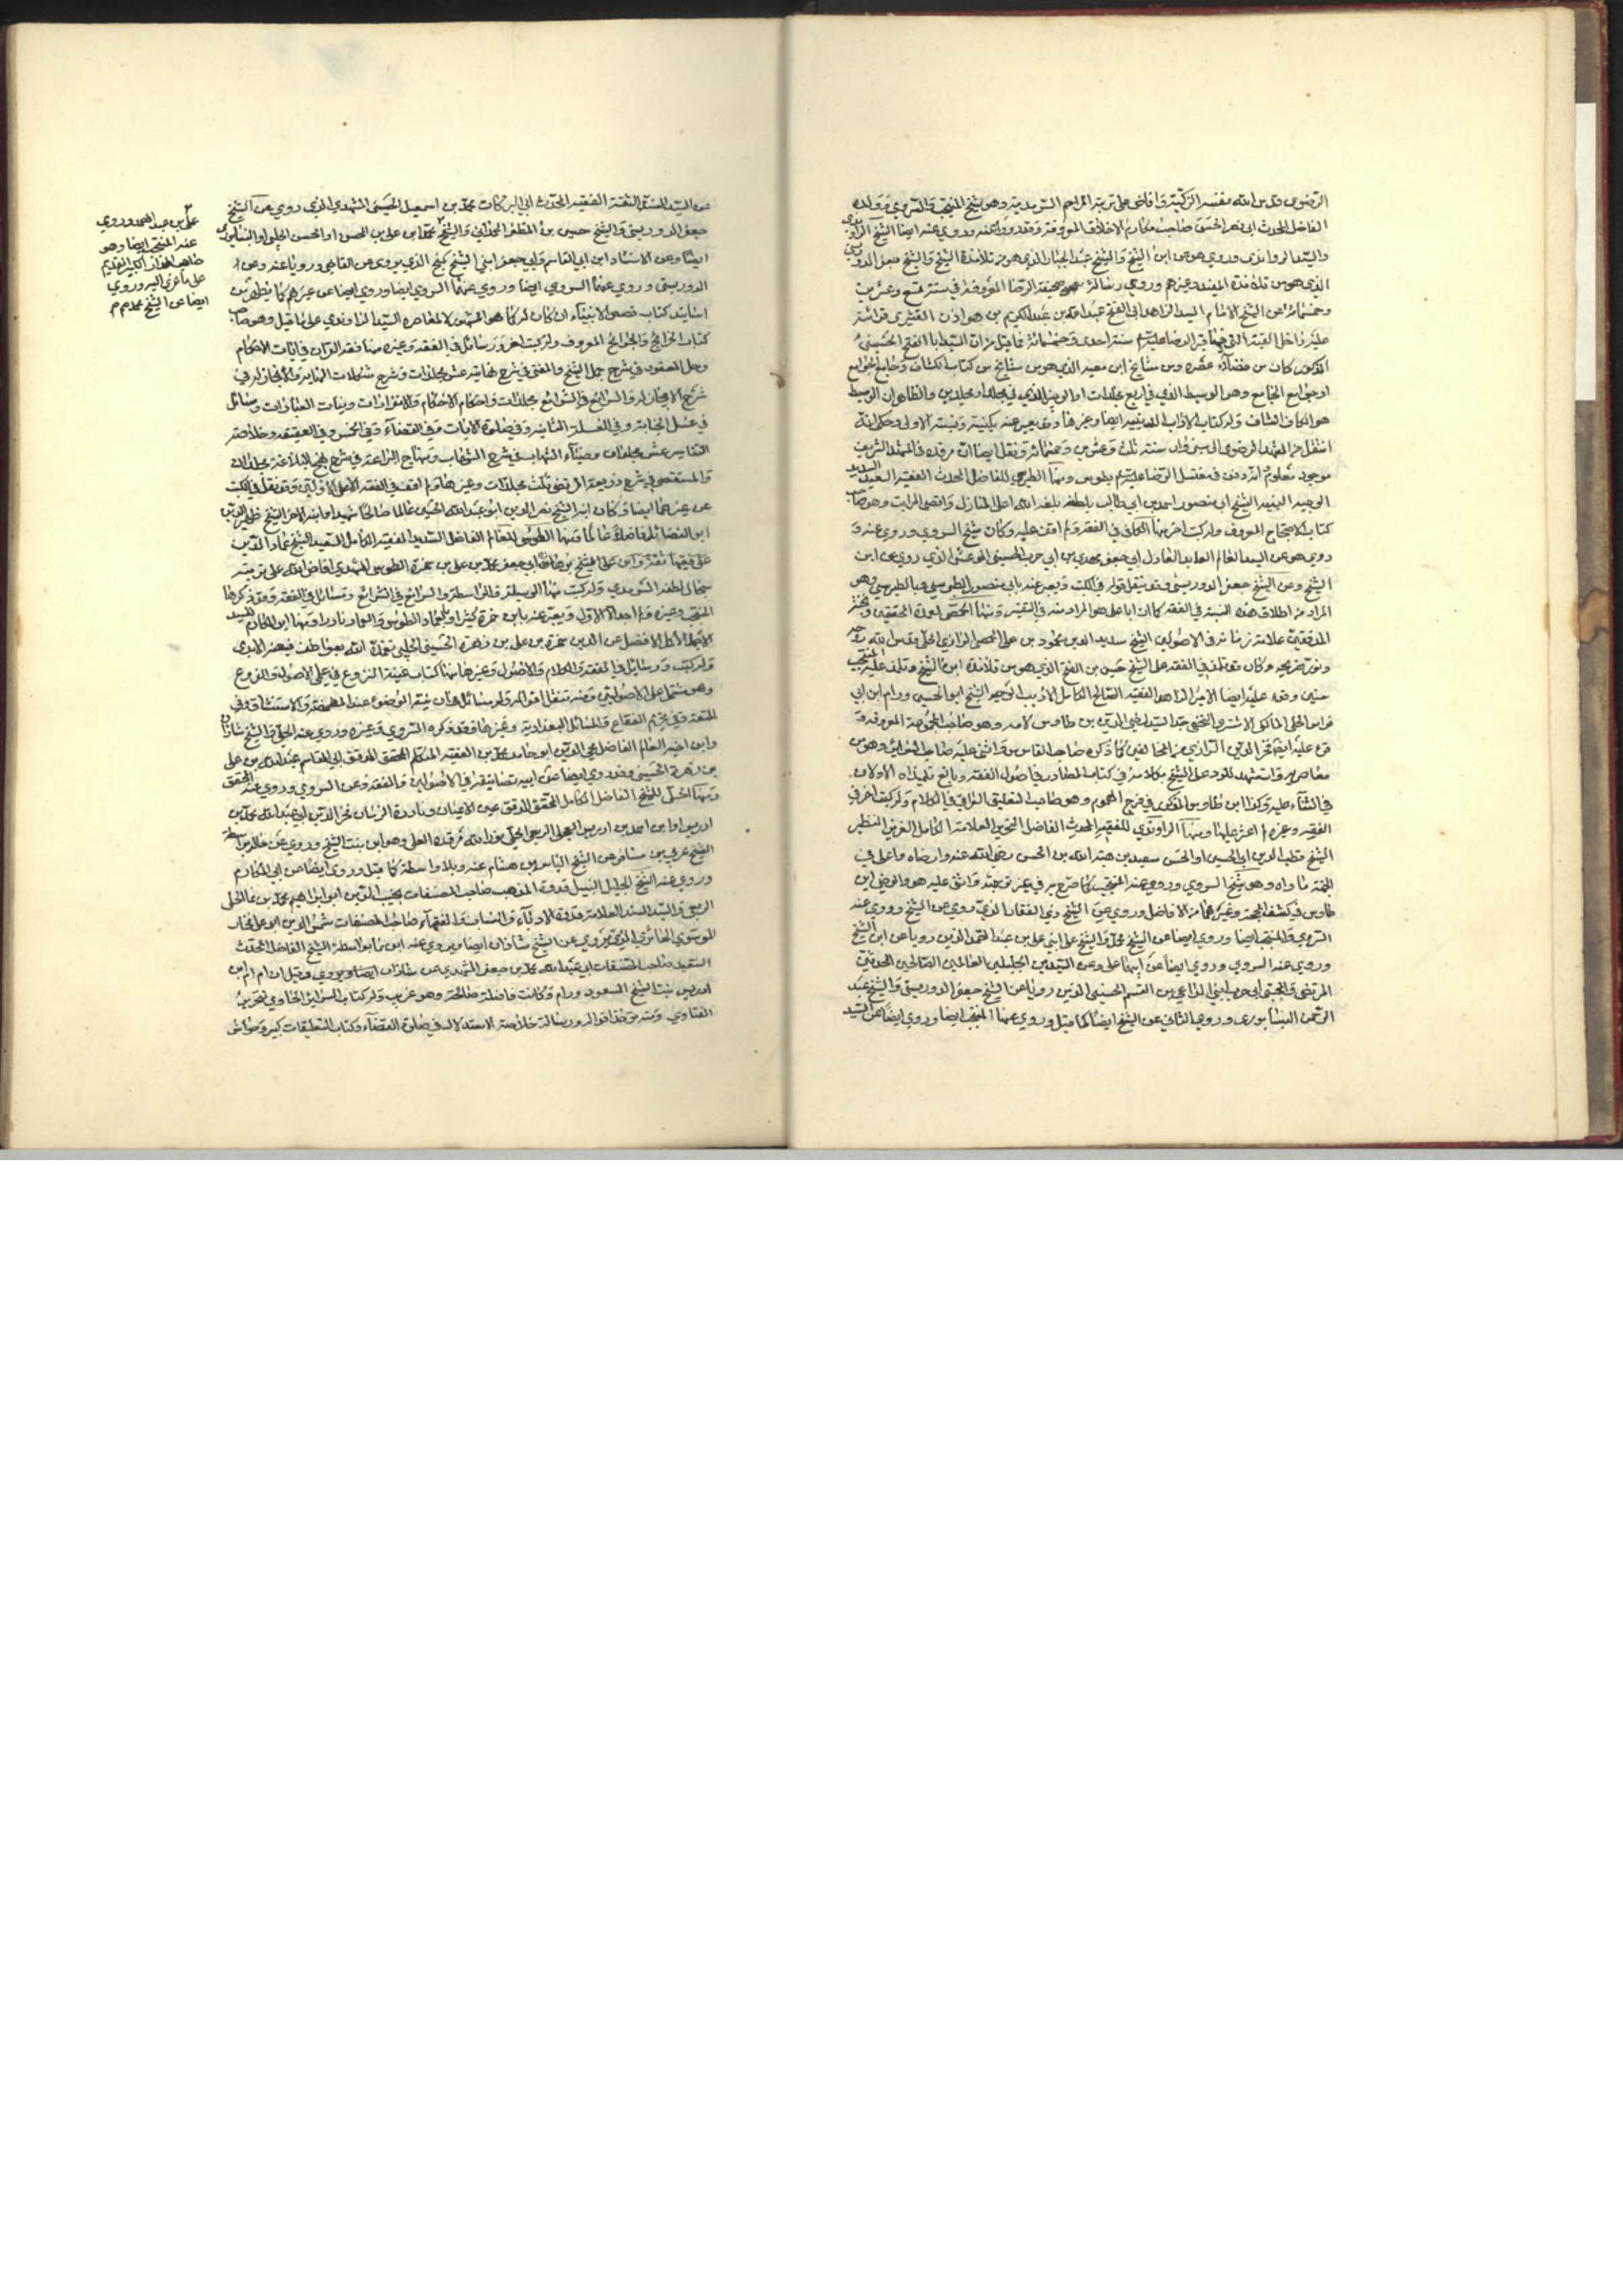 الرضوي قدس الله نفسه الزكية وافاض على تربته المراحم السرمدية وهو شيخ المنتجب والسروي وولده
الفاضل المحدث ابي نصر الحسن صاحب مكارم الاخلاق المعروفة وقد روى عنه وروي عنه ايضا الشيخ الراوندي
والسيد الراوندي وروي هو عن ابن الشيخ والشيخ عبد الجبار الذي هو من تلامذة الشيخ والشيخ جعفر الدوريستي
الذي هو من تلامذة المفيد وغيرهم وروي صحيفة الرضا المعروفة في سنة تسع وعشرين
وخمسمائة عن الشيخ الامام السيد الزاهد ابي الفتح عبد الله بن عبد الكريم بن هوازن القشيري قرائة
عليه داخل القبة التي فيها قبر الرضا عليه السلام سنة احدى وخمسمائة
المذكور كان من فضلاء عصره ومن مشايخ ابن معبد الذي هو من مشايخ من كتاب الكشاف وجامع الجوامع
او جوامع الجامع وهو الوسيط الذي في اربع مجلدات او الوجيز الذي في مجلد او مجلدين والظاهر ان الوسيط
هو الكاف الشاف وله كتاب الاداب الدينية ايضا وغيرها وقد يعبر عنه بكنيته ونسبته الاولى وحكي انه
انتقل من المشهد الرضوي الى سبزوار سنة ثلث وعشرين وخمسمائة ونقل ايضا ان مرقده في المشهد الشريف
موجود معلوم انه دفن في مغتسل الرضا عليه السلام بطوس ومنها الطبرسي للفاضل المحدث الفقيه السعيد
الوجيه النبيه الشيخ ابي منصور احمد بن ابي طالب بلطفه بلغه الله اعلى المنازل واقصى المراتب وهو صاحب
كتاب الاحتجاج المعروف وله كتب اخر منها الكافي في الفقه ولم اقف عليه وكان شيخ السروي وروي عنه و
روي هو عن السيد العالم العابد العادل ابي جعفر مهدي بن ابي حرب الحسيني المرعشي الذي روي عن ابن
الشيخ وعن الشيخ جعفر الدوريستي وقد ينقل قوله في الكتب ويعبر عنه بابي منصور الطبرسي وبالطبرسي وهو
المراد من اطلاق هذه النسبة في الفقه كما ان ابا علي هو المراد منه في التفسير ومنها الحمصي لعمدة المحققين
المدققين علامة زمانه في الاصولين الشيخ سديد الدين محمود بن علي الحمصي الرازي الحلي قدس الله روحه
ونور ضريحه وكان تلمذ في الفقه على الشيخ حسين بن الفتح الذي هو من تلامذة ابن الشيخ وتلمذ عليه المنتجب
سنين وقرء عليه ايضا الامير الزاهد الفقيه الصالح الكامل الاديب الوجيه الشيخ ابو الحسين ورام ابن ابي
فراس الحلي المالكي الاشتري النخعي جد السيد رضي الدين بن طاوس لامه وهو صاحب المجموعة المعروفة و
في الثناء عليه وكذا ابن طاوس المذكور في فرج المهموم وهو صاحب التعليق العراقي في الكلام وله كتب اخر في
الفقه وغيره لم اعثر عليها ومنها الراوندي للفقيه المحدث الفاضل النحرير العلامة الكامل العزيز النظير
الشيخ قطب الدين ابي الحسين او الحسن سعيد بن هبة الله بن الحسن رضي الله عنه وارضاه واعلى في
الجنة مأواه وهو شيخ السروي وروي عنه المنتجب كما صرح به في غير ترجمته واثنى عليه هو والرضي ابن
طاوس في كشف المحجة وغيرهما من الافاضل وروي عن الشيخ ذي الفقار الذي روي عن الشيخ وروي عنه
السروي والمنتجب ايضا وروي ايضا عن الشيخ محمد والشيخ علي ابني علي بن عبد الصمد الذين رويا عن ابن الشيخ
وروي عنه السروي وروي ايضا عن ابيهما علي وعن السيدين الجليلين العالمين الصالحين المحدثين
المرتضى والمجتبى ابني الداعي بن القسم الحسيني الذين رويا عن الشيخ جعفر الدوريستي والشيخ عبد
الرحمن النيسابوري وروي الثاني عن الشيخ ايضا كما قيل وروي عنهما المنتجب ايضا وروي ايضا عن السيد
عن السيد الثقة الفقيه المحدث ابي البركات محمد بن اسمعيل الحسيني المشهدي الذي روي عن الشيخ
جعفر الدوريستي والشيخ حسين بن المظفر الحمداني والشيخ محمد بن علي بن المحسن او الحسن الحلبي او النيسابوري
ايضا وعن الاستاد ابن ابي القاسم وابي جعفر ابني الشيخ كميح الذي يروي عن القاضي ورويا عنه وعن
الدوريستي وروي عنهما السروي ايضا وروي ايضا عن غيرهم كما يظهر من
اسانيد كتاب قصص الانبياء ان كان له كما هو المشهور لا لمعاصره السيد الراوندي على ما قيل وهو صاحب
كتاب الخرائج والجرائح المعروف وله كتب اخر ورسائل في الفقه وغيره منها فقه القران في ايات الاحكام
وحل العقود في شرح جمل الشيخ والمغني في شرح نهايته عشر مجلدات وشرح مشكلات النهاية والانجاز له في
شرح الايجاز له والرائع في الشرائع مجلدات واحكام الاحكام والانفرادات ونيات العبادات ومسائل
في غسل الجنابة وفي الغسلة الثانية وفي صلوة الايات وفي القضاء وفي الخمس وفي العقيقة وخلاصة
التفاسير عشر مجلدات وضياء الشهاب في شرح الشهاب ومنهاج البراعة في شرح نهج البلاغة مجلدات
والمستقصى في شرح ذريعة المرتضى ثلث مجلدات وغيرها ولم اقف في الفقه الا على الاولتين وقد نقل في الكتب
عن غيرهما ايضا وكان ابنه الشيخ نصير الدين ابو عبد الله الحسين عالما صالحا شهيدا وابنه الاخر الشيخ ظهير الدين
ابو الفضائل فاضلا عالما ومنها الطوسي للعالم الفاضل السديد الفقيه الكامل السعيد الشيخ عماد الدين
ابي جعفر محمد بن علي بن حمزة الطوسي المشهدي افاض الله على تربته
سجال لطفه السرمدي وله كتب منها الوسيلة والواسطة والرائع في الشرائع ومسائل في الفقه وقد ذكرها
المنتجب وغيره ولم اجد الا الاول ويعبر عنه بابن حمزة كثيرا وبالعماد الطوسي والعماد نادرا ومنها ابو المكارم للسيد
الاجل الاكمل الافضل عز الدين حمزة بن علي بن زهرة الحسيني الحلبي تغمده الله بعواطف فيضه الابدي
وله كتب ورسائل في الفقه والكلام والاصول وغيرها منها كتاب غنية النزوع في علمي الاصول والفروع
وهو مشتمل على الاصولين ومنه تنقل اقواله وله مسائل في ان نية الوضوء عند المضمضة والاستنشاق وفي
المتعة وفي تحريم الفقاع والمسائل البغدادية وغيرها وقد ذكره السروي وغيره وروي عنه الحلي والشيخ شاذان
وابن اخيه العالم الفاضل محيي الدين ابو حامد محمد بن الفقيه المتكلم المحقق المدقق ابي القاسم عبد الله بن علي
بن زهرة الحسيني وقد روي ايضا عن ابيه تصانيفه في الاصولين والفقه وعن السروي وروي عنه المحقق
ومنها الحلي للشيخ الفاضل الكامل المحقق المدقق عين الاعيان ونادرة الزمان فخر الدين ابي عبد الله محمد بن
ادريس او ابن احمد بن ادريس العجلي الربعي الحلي نور الله مرقده العلي وهو ابن بنت الشيخ وروي عن خاله بواسطة
الشيخ عربي بن مسافر عن الشيخ الياس بن هشام عنه وبلا واسطة كما قيل وروى ايضا عن ابي المكارم
وروي عنه الشيخ الجليل النبيل قدوة المذهب صاحب المصنفات نجيب الدين ابو ابراهيم محمد بن نما الحلي
الربعي والسيد السند العلامة قدوة الادباء والنساب والفقهاء صاحب المصنفات شمس الدين ابو علي فخار
الموسوي الحائري الذي يروي عن الشيخ شاذان ايضا ويروي عنه ابن نما بواسطة الشيخ الفاضل المحدث
السعيد صاحب المصنفات ابي عبد الله محمد بن جعفر المشهدي عن شاذان ايضا وقيل ان ام ام ابن
ادريس بنت الشيخ المسعود ورام وكانت فاضلة صالحة وهو غريب وله كتاب السرائر الحاوي لتحرير
الفتاوي ومنه تؤخذ اقواله ورسالة خلاصة الاستدلال في صلوة القضاء وكتاب التعليقات كبير وحواش
علي بن عبد الصمد وروي
عنه المنتجب ايضا وهو
على ما عزي اليه وروي
ايضا عن الشيخ محمد